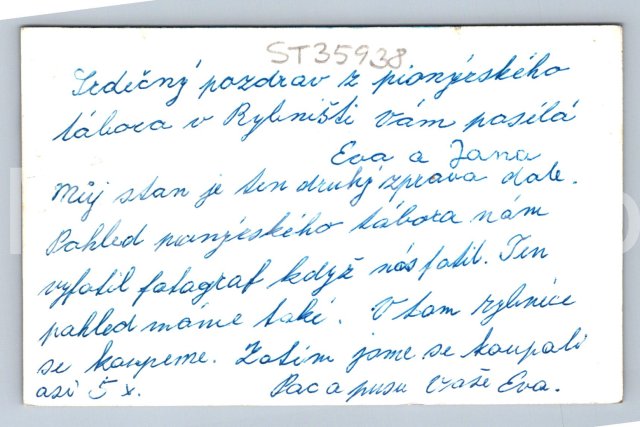 ST35938
Srdečný pozdrav z pionýrského
tábora v Rybništi Vám posílá
Eva a Jana
Můj stan je ten druhý zprava dole.
Pohled pionýrského tábora nám
vyfotil fotograf když nás fotil. Ten
pohled máme také. V tom rybníce
se koupeme. Zatím jsme se koupali
asi 5x. Pac a pusu Vaše Eva.